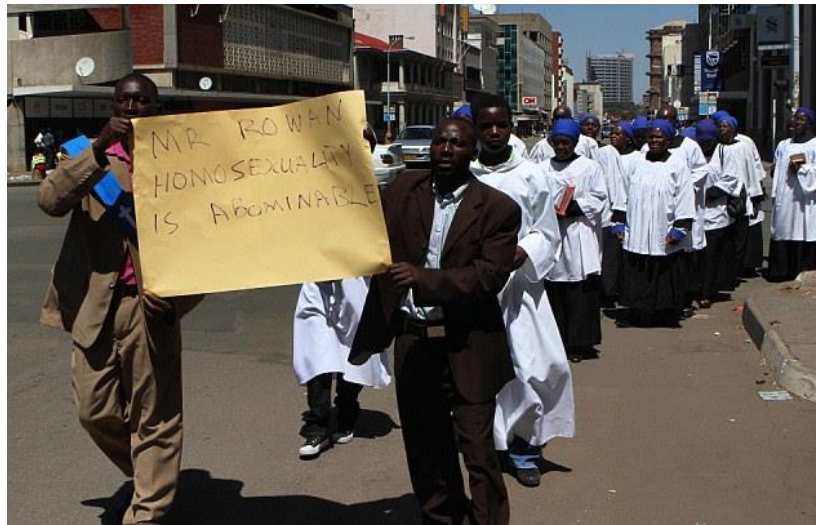 MR ROWAN
HOMOSEXUALITY
IS ABOMINABLE